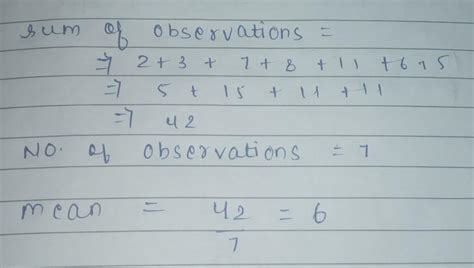 sum of observations =
⇒ 2 + 3 + 7 + 8 + 11 + 6 + 5
⇒ 5 + 15 + 11 + 11
⇒ 42
NO. of observations = 7
mean = 42/7 = 6